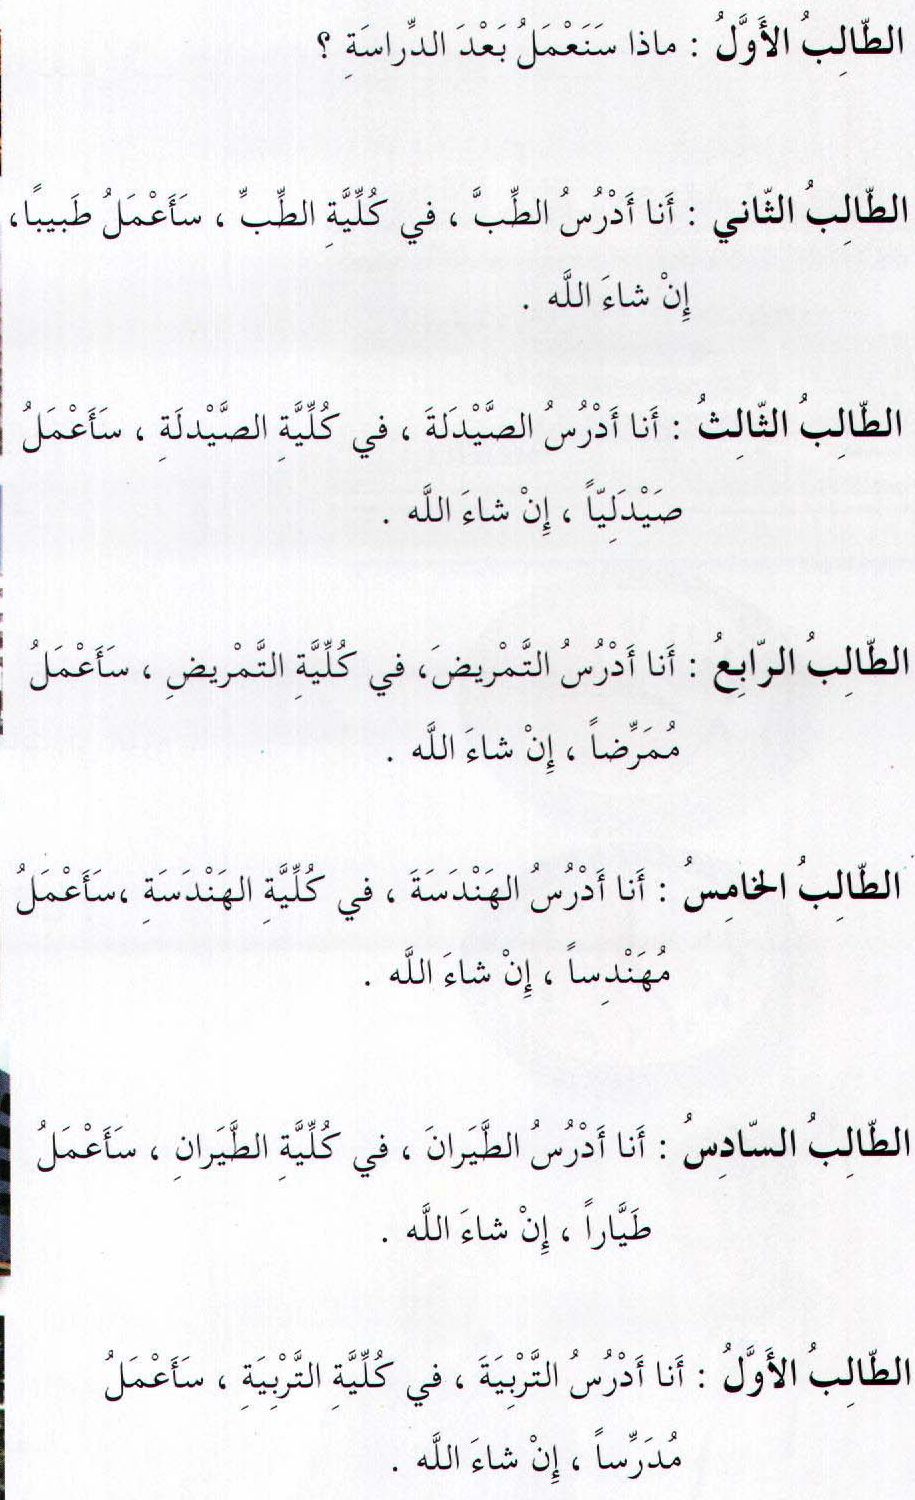 الطّالِبُ الأَوَّلُ : ماذا سَنَعْمَلُ بَعْدَ الدِّراسَةِ ؟
الطّالِبُ الثّاني : أَنا أَدْرُسُ الطِّبَّ ، في كُلِّيَّةِ الطِّبِّ ، سَأَعْمَلُ طَبيبًا،
إِنْ شاءَ اللَّه .
الطّالِبُ الثّالِثُ : أَنا أَدْرُسُ الصَّيْدَلةَ ، في كُلِّيَّةِ الصَّيْدلَةِ ، سَأَعْمَلُ
صَيْدَلِيّاً ، إِنْ شاءَ اللَّه .
الطّالِبُ الرّابِعُ : أَنا أَدْرُسُ التَّمْريضَ، في كُلِّيَّةِ التَّمْريضِ ، سَأَعْمَلُ
مُمَرِّضاً ، إِنْ شاءَ اللَّه .
الطّالِبُ الخامِسُ : أَنا أَدْرُسُ الهَنْدَسَةَ ، في كُلِّيَّةِ الهَنْدَسَةِ ،سَأَعْمَلُ
مُهَنْدِساً ، إِنْ شاءَ اللَّه .
الطّالِبُ السّادِسُ : أَنا أَدْرُسُ الطَّيَرانَ ، في كُلِّيَّةِ الطَّيَرانِ ، سَأَعْمَلُ
طَيَّاراً ، إِنْ شاءَ اللَّه .
الطّالِبُ الأَوَّلُ : أَنا أَدْرُسُ التَّرْبِيَةَ ، في كُلِّيَّةِ التَّرْبِيَةِ ، سَأَعْمَلُ
مُدَرِّساً ، إِنْ شاءَ اللَّه .